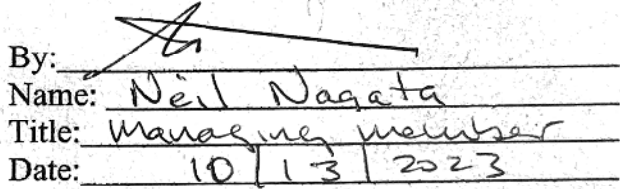 By:
Name: Neil Nagata
Title: Managing member
Date: 10 | 13 | 2023